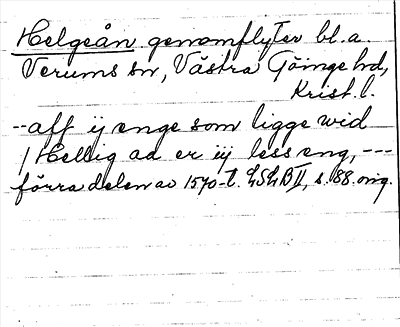 Helgeån genomflyter bl.a.
Verums sn, Västra Göinge hd,
Krist. l.
--aff ij enge som ligge wid
/Hellig aa er iij less eng, ---
förra delen av 1570-t. LSLB II, s. 88. orig.